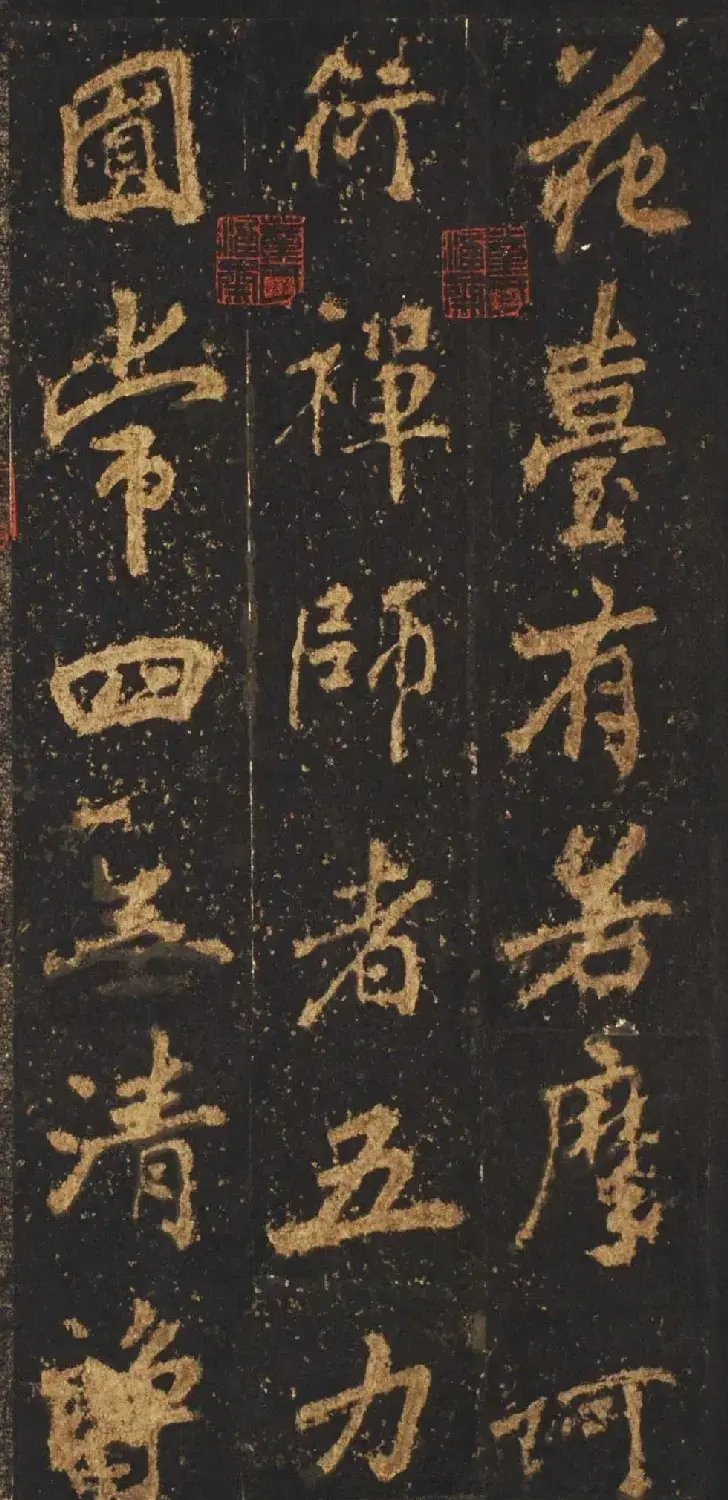 花臺有若摩訶
衍禪師者五力
圓常四無清淨